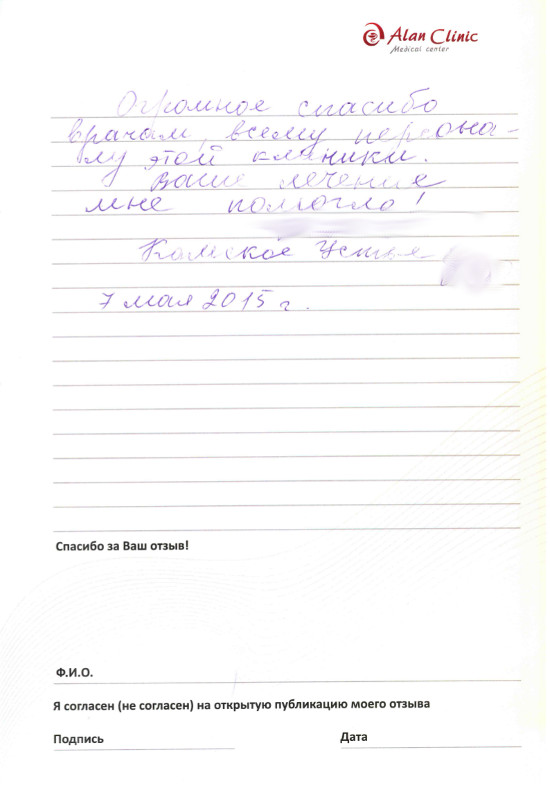 Alan Clinic
Medical center
Огромное спасибо
врачам, всему персона-
лу этой клиники.
Ваше лечение
мне помогло!
Камское Устье
7 мая 2015 г.
Спасибо за Ваш отзыв!
Ф.И.О.
Я согласен (не согласен) на открытую публикацию моего отзыва
Подпись
Дата